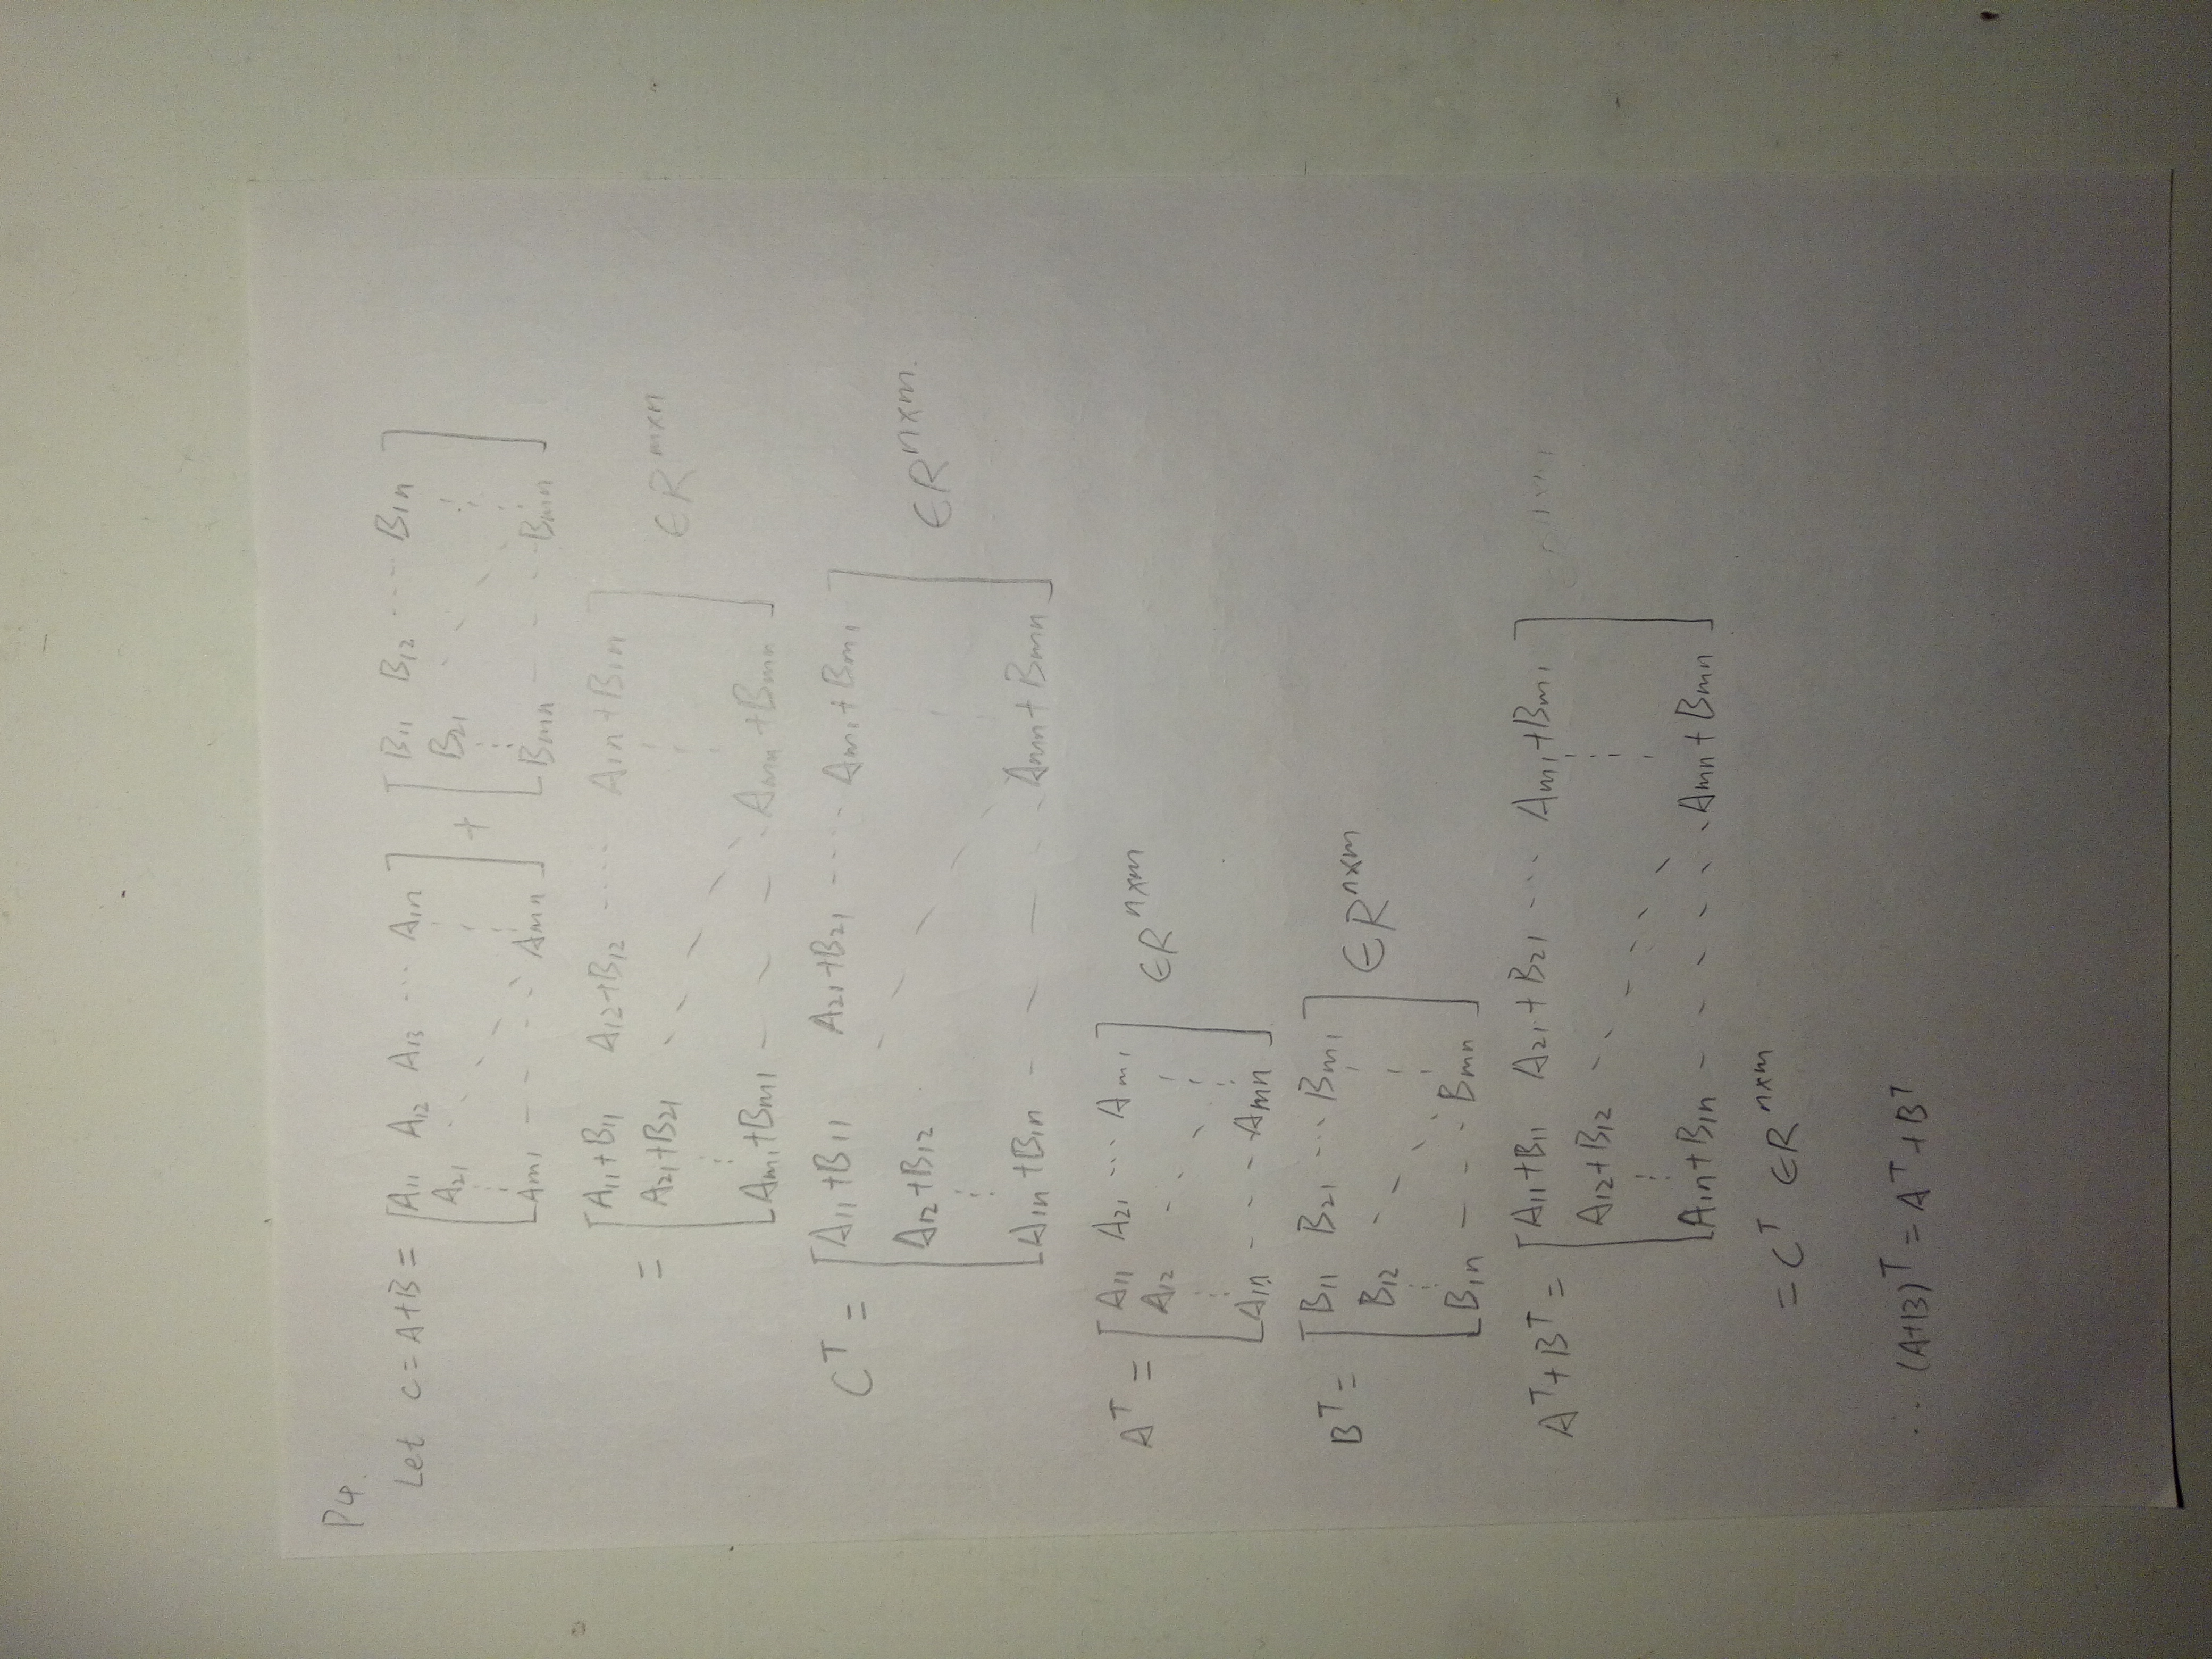 P4.
Let C = A+B = [A₁₁ A₁₂ A₁₃ ··· A₁ₙ] + [B₁₁ B₁₂ ···· B₁ₙ]
A₂₁ B₂₁
Aₘ₁ - - - - Aₘₙ Bₘₙ - - - Bₘₙ
= [A₁₁+B₁₁ A₁₂+B₁₂ ···· A₁ₙ+B₁ₙ]
A₂₁+B₂₁ ∈R^{m×n}
Aₘ₁+Bₘ₁ - - - - Aₘₙ+Bₘₙ
C^T = [A₁₁+B₁₁ A₂₁+B₂₁ ···· Aₘ₁+Bₘ₁]
A₁₂+B₁₂ ∈R^{n×m}.
A₁ₙ+B₁ₙ - - - - Aₘₙ+Bₘₙ
A^T = [A₁₁ A₂₁ ··· Aₘ₁] ∈R^{n×m}
A₁₂
A₁ₙ - - - Aₘₙ
B^T = [B₁₁ B₂₁ ··· Bₘ₁] ∈R^{n×m}
B₁₂
B₁ₙ - - - Bₘₙ
A^T+B^T = [A₁₁+B₁₁ A₂₁+B₂₁ ··· Aₘ₁+Bₘ₁]
A₁₂+B₁₂
A₁ₙ+B₁ₙ - - - - - - Aₘₙ+Bₘₙ
= C^T ∈R^{n×m}
∴ (A+B)^T = A^T + B^T